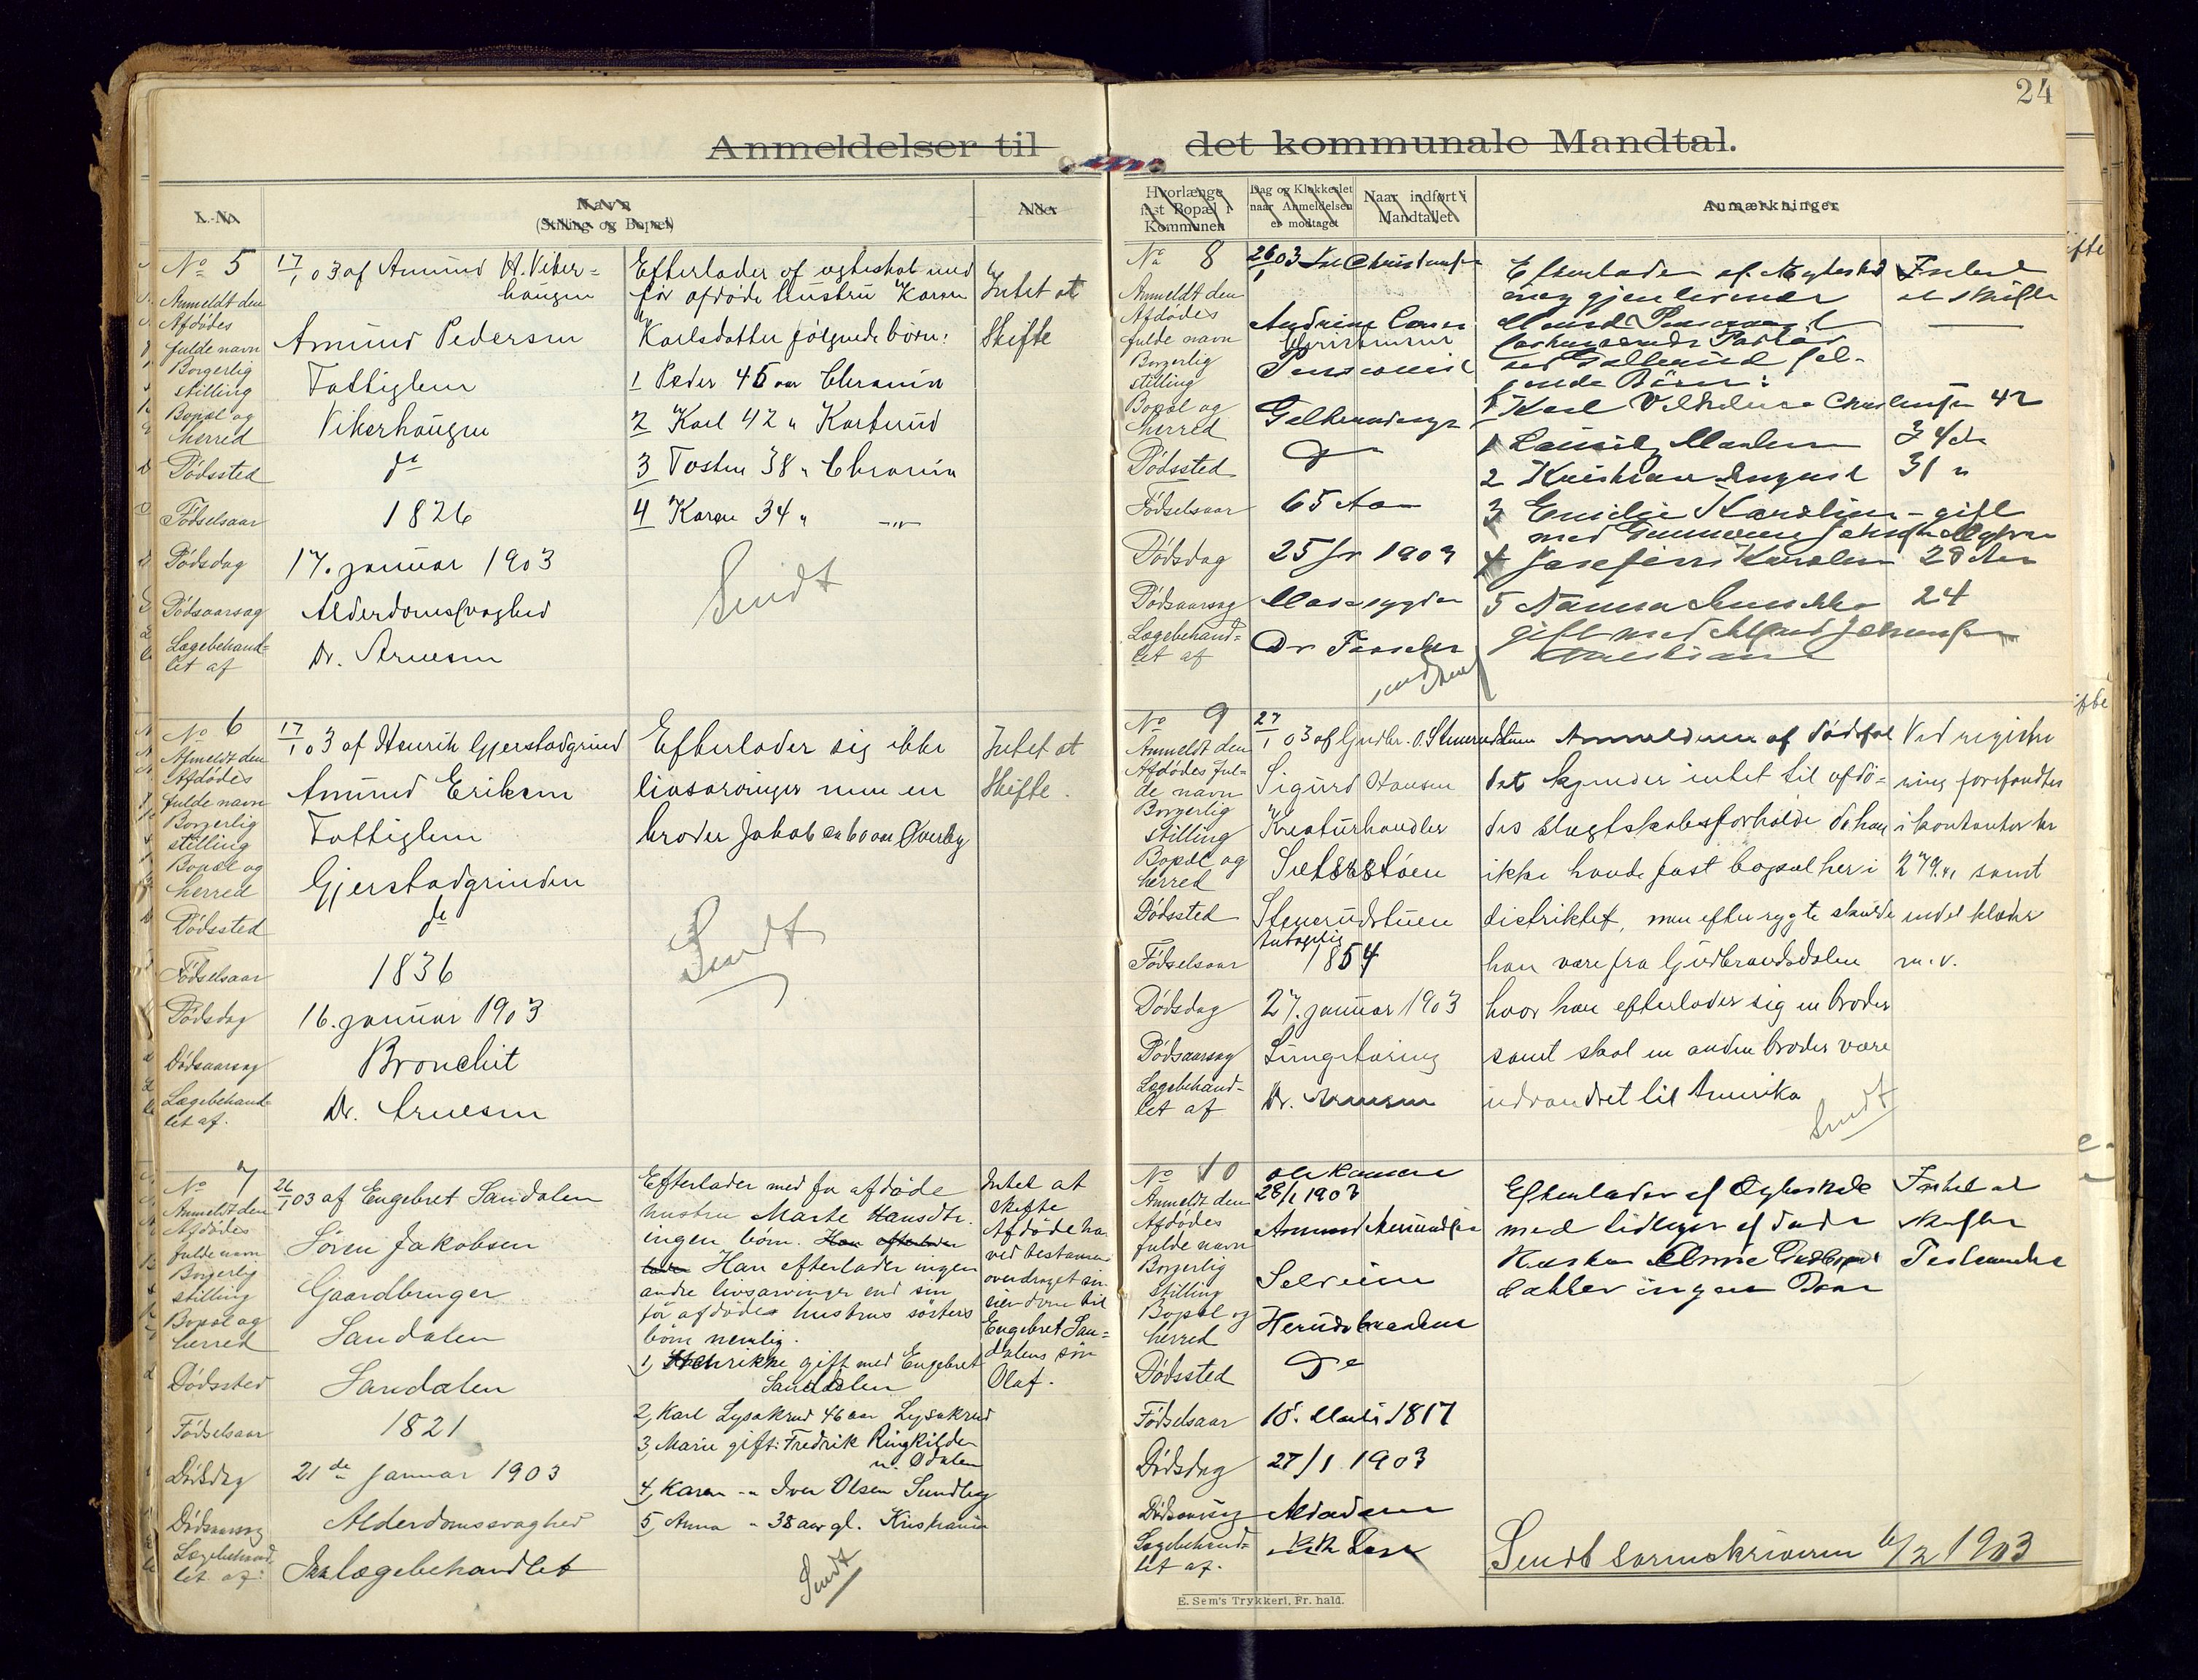 24
Anmeldelser til det kommunale Mandtal.
L.-No.
Navn
(Stilling og Bopæl)
Alder
Hvorlænge
fast Bopæl i
Kommunen
Dag og Klokkeslet
naar Anmeldelsen
er modtaget
Naar indført i
Mandtallet
Anmærkninger
No 5
Anmeldt den
17/1 03 af Amund H. Viker=
haugen
Afdødes
fulde navn
Amund Pedersen
Borgerlig
stilling
Fattiglem
Bopæl og
herred
Vikerhaugen
Dødssted
do
Fødselsaar
1826
Dødsdag
17. januar 1903
Dødsaarsag
Alderdomssvaghed
Lægebehand=
let af
Dr. Arnesen
Efterlader af egteskab med
før afdøde hustru Karen
Karlsdatter følgende børn:
1 Peder 45 aar Chrania
2 Karl 42 " Karterud
3 Tosten 38 " Chrania
4 Karen 34 " -"-
Sendt
Intet at
Skifte
No 6
Anmeldt den
17/1 03 af Henrik Gjerstadgrind
Afdødes
fulde navn
Amund Eriksen
Borgerlig
stilling
Fattiglem
Bopæl og
herred
Gjerstadgrinden
Dødssted
do
Fødselsaar
1836
Dødsdag
16. januar 1903
Dødsaarsag
Bronchit
Lægebehand=
let af.
Dr. Arnesen
Efterlader sig ikke
livsarvinger men en
broder Jakob ca 60 aar Overby
Sendt
Intet at
Skifte.
No 7
Anmeldt den
26/1 03 af Engebret Sandalen
Afdødes
fulde navn
Søren Jakobsen
Borgerlig
stilling
Gaardbruger
Bopæl og
herred
Sandalen
Dødssted
Sandalen
Fødselsaar
1821
Dødsdag
21de Januar 1903
Dødsaarsag
Alderdomssvaghed
Lægebehand
let af:
Ikke lægebehandlet
Efterlader med før afdøde
hustru Marte Hansdtr.
ingen børn. Han efterlader
Han efterlader ingen
andre livsarvinger end sin
før afdødes hustrus søsters
børn nemlig.
1, Henrikke gift med Engebret
Sandalen
2, Karl Lysakrud 46 aar Lysakrud
3, Marie gift: Fredrik Ringkilden
n. Odalen
4, Karen -" Iver Olsen Sundby
5, Anna " 38 aar gl. Kristiania
Sendt
Intet at
skifte
Afdøde ha
ved testamen
overdraget sin
eiendom til
Engebret San=
dalens søn
Olaf.
No 8
Anmeldt den
26/1 03
Afdødes
fulde navn
Borgerlig
stilling
Bopæl og
herred
Dødssted
Do
Fødselsaar
65 Aar
Dødsdag
25/1 1903
Dødsaarsag
Mavesygdom
Lægebehand=
let af
Efterlader af Ægteskab
med gjenlevende
følgende Børn:
Karl Vilhelm Christensen 42
1 Lauritz Martin 34 do
2 Kristian August 31 "
3 Emilie Karoline - gift
4 Josefine Karoline 28 Aar
5 Nanna 24
gift med Alfred Johansen
Intet
at skifte
No 9
Anmeldt den
27/1 03 af Gudbr. O. Stenerudstuen
Afdødes ful=
de navn
Sigurd Hansen
Borgerlig
stilling
Kreaturhandler
Bopæl og
herred
Sæterstøen
Dødssted
Stenerudstuen
Fødselsaar
Antagelig
1854
Dødsdag
27. januar 1903
Dødsaarsag
Lungetæring
Lægebehand-
let af
Dr. Arnesen
Anmelderen af dødsfal
det kjender intet til afdø=
des slægtskabsforholde da han
ikke havde fast bopæl her i
distriktet, men efter rygte skulde
han være fra Gudbrandsdalen
hvor han efterlader sig en broder
samt skal en anden broder være
udvandret til Amerika
Sendt
Ved registre
ring forefandtes
i kontanter kr
279.41 samt
endel klæder
m.v.
No 10
Anmeldt den
Ole Hansen
28/1 1903
Afdødes
fulde navn
Amund Amundsen
Borgerlig
stilling
Selveier
Bopæl og
herred
Dødssted
Do
Fødselsaar
10. Marts 1817
Dødsdag
27/1 1903
Dødsaarsag
Alderdom
Lægebehand=
let af.
Efterlader af Ægteskab
med tidligere afdøde
Hustru Anne Gudbrands
datter ingen Børn
Intet at
skifte
Testamente
Sendt sorenskriveren 6/2 1903
E. Sem's Trykkeri, Fr.hald.